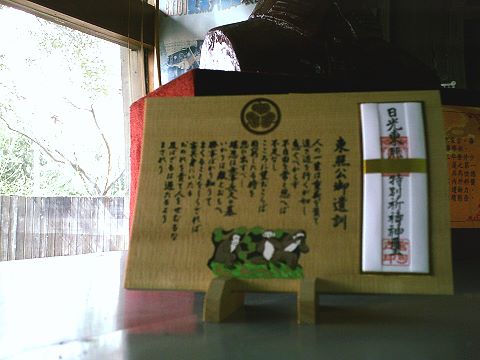 日光東照宮特別祈祷神璽
東照公御遺訓
人の一生は重荷を負て
遠き道を行くが如し
急ぐべからず
不自由を常と思へば
不足なし
こころに望おこらば
困窮したる時を
思ひ出すべし
堪忍は無事長久の基
いかりは敵とおもへ
勝事ばかり知りて
まくる事をしらざれば
害其身にいたる
おのれを責て人をせむるな
及ばざるは過たるより
まされり